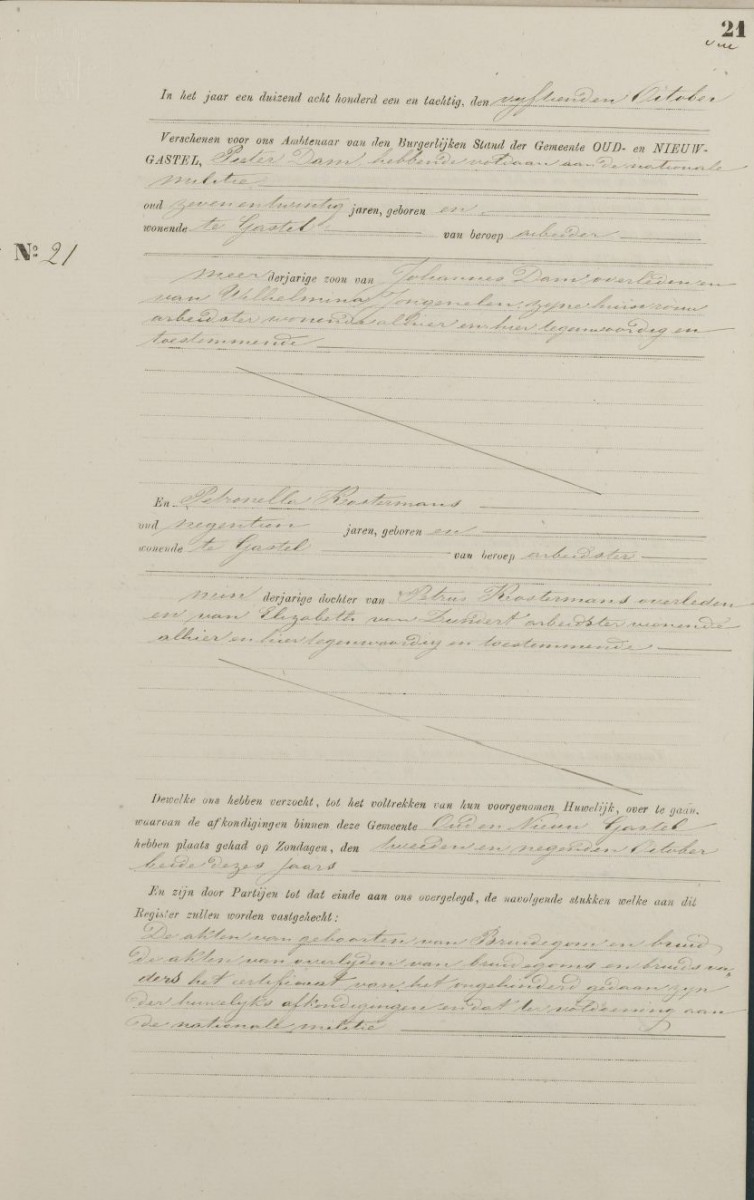 21
In het jaar een duizend acht honderd een en tachtig, den vyftienden October
Verschenen voor ons Ambtenaar van den Burgerlijken Stand der Gemeente OUD- en NIEUW-
GASTEL, Peeter Dam hebbende voldaan aan de nationale
militie
oud zevenentwintig jaren, geboren en
wonende te Gastel van beroep arbeider
No. 21
meerderjarige zoon van Johannes Dam overleden en
van Wilhelmina Jongenelen zyne huisvrouw
arbeidster wonende alhier en hier tegenwoordig en
toestemmende
En Petronella Kostermans
oud negentien jaren, geboren en
wonende te Gastel van beroep arbeidster
minderjarige dochter van Petrus Kostermans overleden
en van Elizabeth van Zundert arbeidster wonende
alhier en hier tegenwoordig en toestemmende
Dewelke ons hebben verzocht, tot het voltrekken van hun voorgenomen Huwelijk, over te gaan,
waarvan de afkondigingen binnen deze Gemeente Oud en Nieuw Gastel
hebben plaats gehad op Zondagen, den tweeden en negenden October
beide dezes jaars
En zijn door Partijen tot dat einde aan ons overgelegd, de navolgende stukken welke aan dit
Register zullen worden vastgehecht:
De akten van geboorten van Bruidegom en bruid
de akten van overlyden van bruidegoms en bruids va,
ders het certificaat van het ongehinderd gedaan zyn
der huwelyks afkondigingen en dat ter voldoening aan
de nationale militie